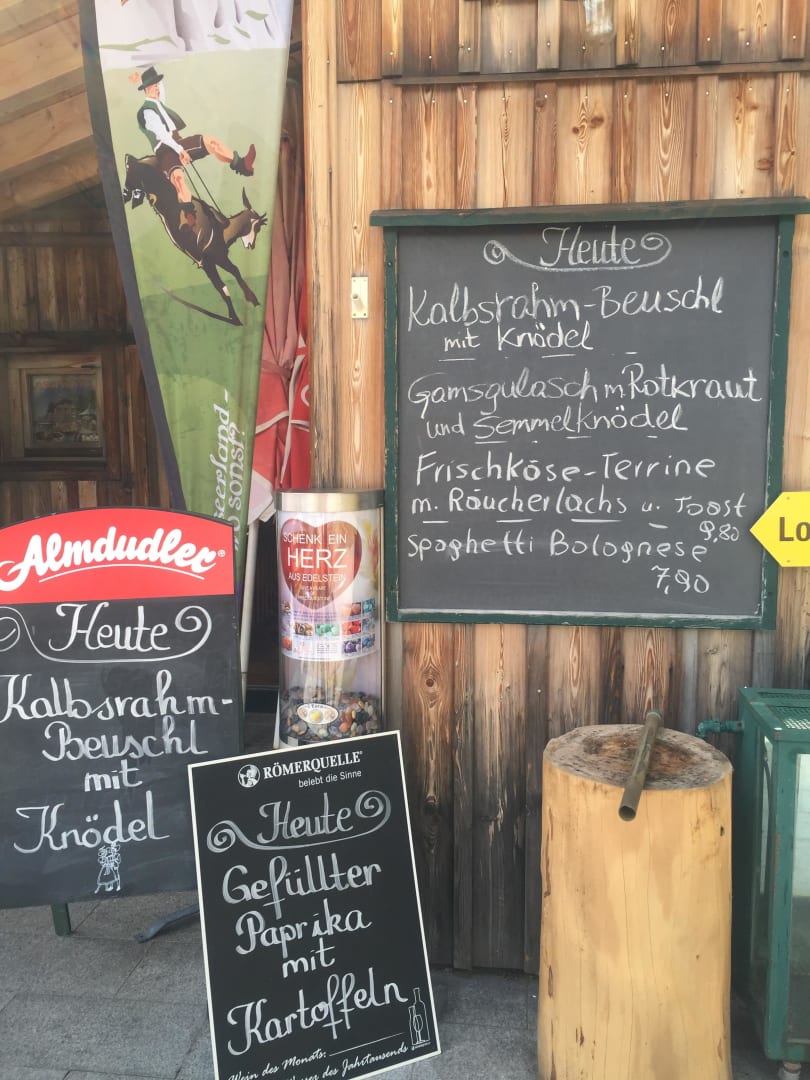 Heute
Kalbsrahm-Beuschl
mit Knödel
Gamsgulasch m. Rotkraut
und Semmelknödel
Frischköse-Terrine
m. Räucherlachs u. Toast
9,80
Spaghetti Bolognese
7,90
Lo
SCHENK EIN
HERZ
AUS EDELSTEIN
Almdudler®
Heute
Kalbsrahm-
Beuschl
mit
Knödel
RÖMERQUELLE®
belebt die Sinne
Heute
Gefüllter
Paprika
mit
Kartoffeln
Wein des Monats:
des Jahrtausends